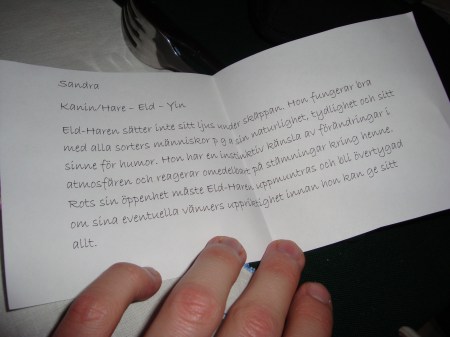 Sandra
Kanin/Hare – Eld – Yin
Eld-Haren sätter inte sitt ljus under skäppan. Hon fungerar bra
med alla sorters människor p g a sin naturlighet, tydlighet och sitt
sinne för humor. Hon har en instinktiv känsla av förändringar i
atmosfären och reagerar omedelbart på stämningar kring henne.
Rots sin öppenhet måste Eld-Haren uppmuntras och bli övertygad
om sina eventuella vänners uppriktighet innan hon kan ge sitt
allt.